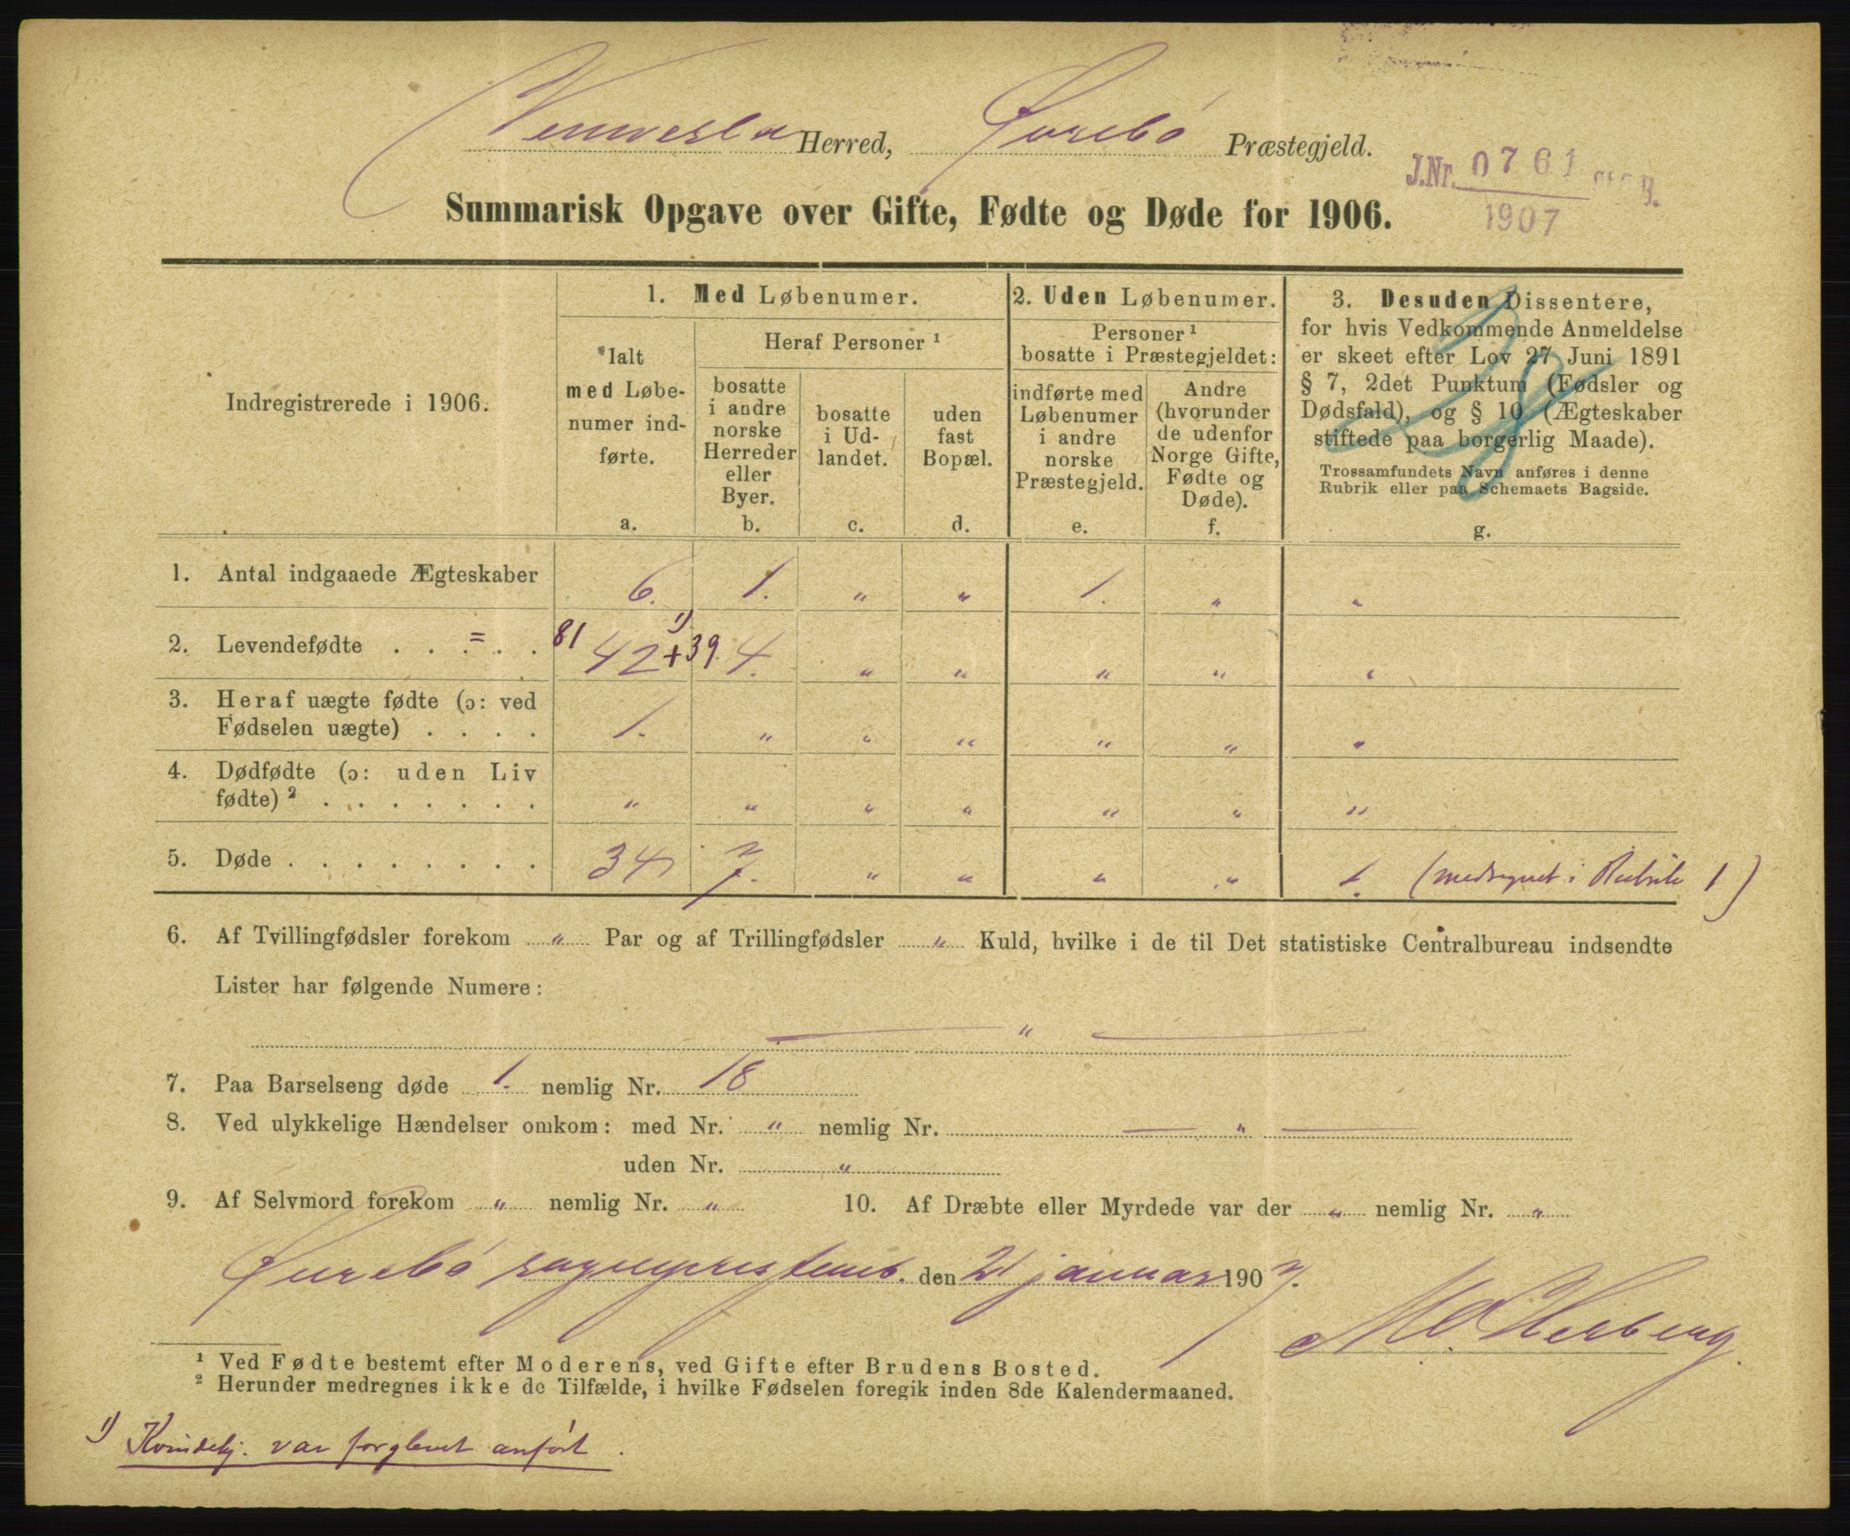 Vennesla Herred, Øvrebø Præstegjeld.
J.Nr. 0761 B.
1907
Summarisk Opgave over Gifte, Fødte og Døde for 1906.
Indregistrerede i 1906.
1. Med Løbenumer.
Ialt med Løbenumer indførte.
a.
Heraf Personer ¹
bosatte i andre norske Herreder eller Byer.
b.
bosatte i Udlandet.
c.
uden fast Bopæl.
d.
2. Uden Løbenumer.
Personer ¹ bosatte i Præstegjeldet:
indførte med Løbenumer i andre norske Præstegjeld.
e.
Andre (hvorunder de udenfor Norge Gifte, Fødte og Døde).
f.
3. Desuden Dissentere,
for hvis Vedkommende Anmeldelse
er skeet efter Lov 27 Juni 1891
§ 7, 2det Punktum (Fødsler og
Dødsfald), og § 10 (Ægteskaber
stiftede paa borgerlig Maade).
Trossamfundets Navn anføres i denne
Rubrik eller paa Schemaets Bagside.
g.
1. Antal indgaaede Ægteskaber 6. 1. " " 1. " "
2. Levendefødte . . = . . 81 42 ¹) + 39 4. " " " " "
3. Heraf uægte fødte (ɔ: ved
Fødselen uægte) . . . . 1. " " " " " "
4. Dødfødte (ɔ: uden Liv
fødte) ² . . . . . . . " " " " " " "
5. Døde . . . . . . . . 34 7. " " " " 1. (medregnet i Rubrik 1)
6. Af Tvillingfødsler forekom " Par og af Trillingfødsler " Kuld, hvilke i de til Det statistiske Centralbureau indsendte
Lister har følgende Numere:
"
7. Paa Barselseng døde 1. nemlig Nr. 18
8. Ved ulykkelige Hændelser omkom: med Nr. " nemlig Nr. "
uden Nr. "
9. Af Selvmord forekom " nemlig Nr. " 10. Af Dræbte eller Myrdede var der " nemlig Nr. "
Øvrebø sogneprestemb. den 21 januar 1907.
¹ Ved Fødte bestemt efter Moderens, ved Gifte efter Brudens Bosted.
² Herunder medregnes ikke de Tilfælde, i hvilke Fødselen foregik inden 8de Kalendermaaned.
¹) Kvindekj. var forglemt anført.